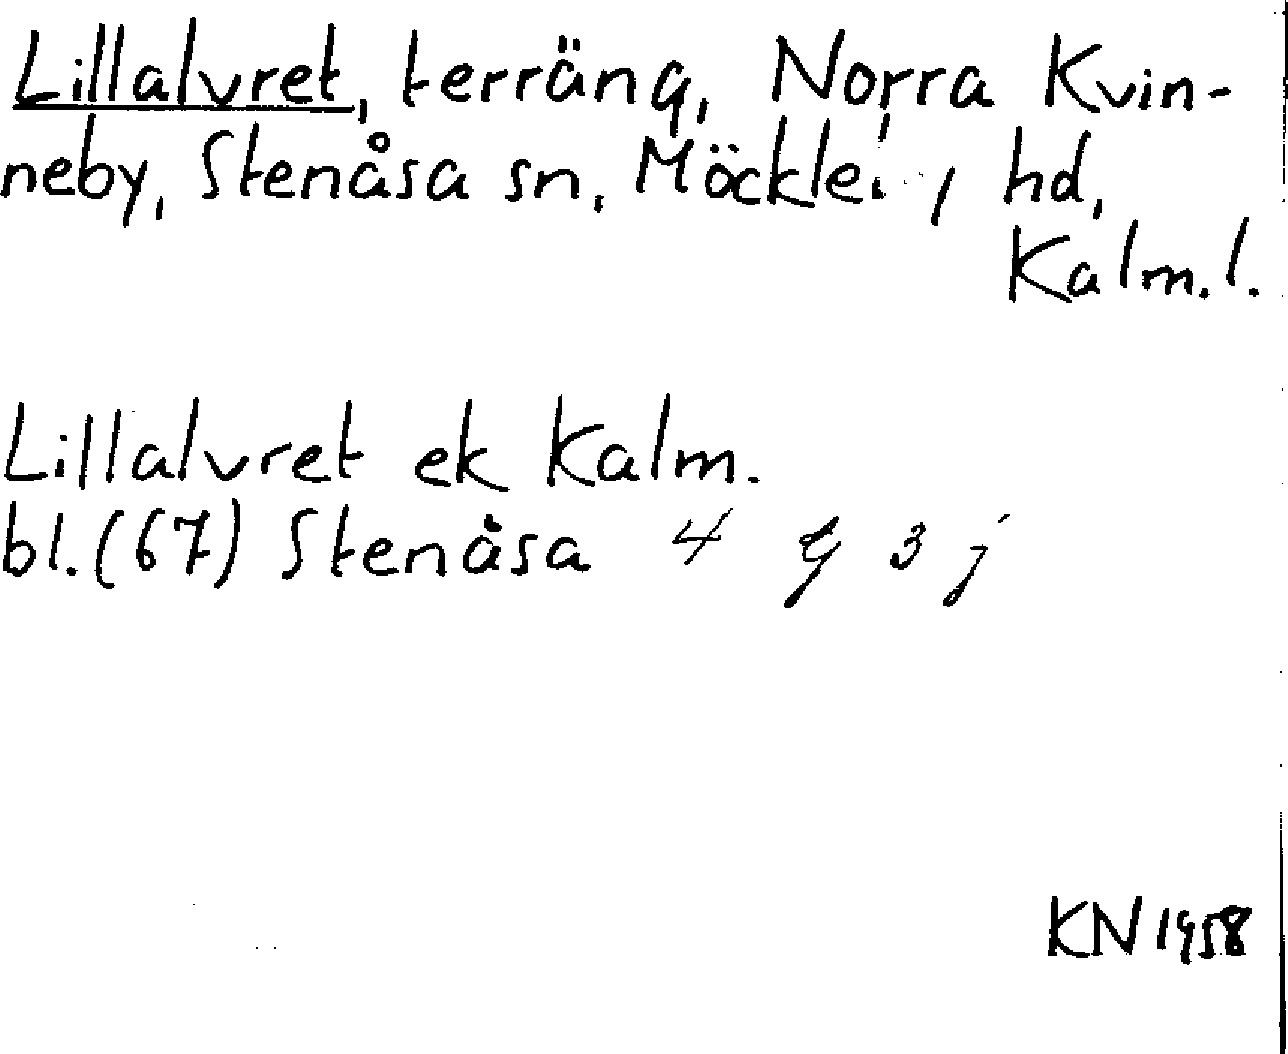 Lillalvret, terräng, Norra Kvin-
neby, Stenåsa sn, hd,
Kalm.l.
Lillalvret ek Kalm.
bl.(67) Stenåsa 4 g 3 j
KN 1958